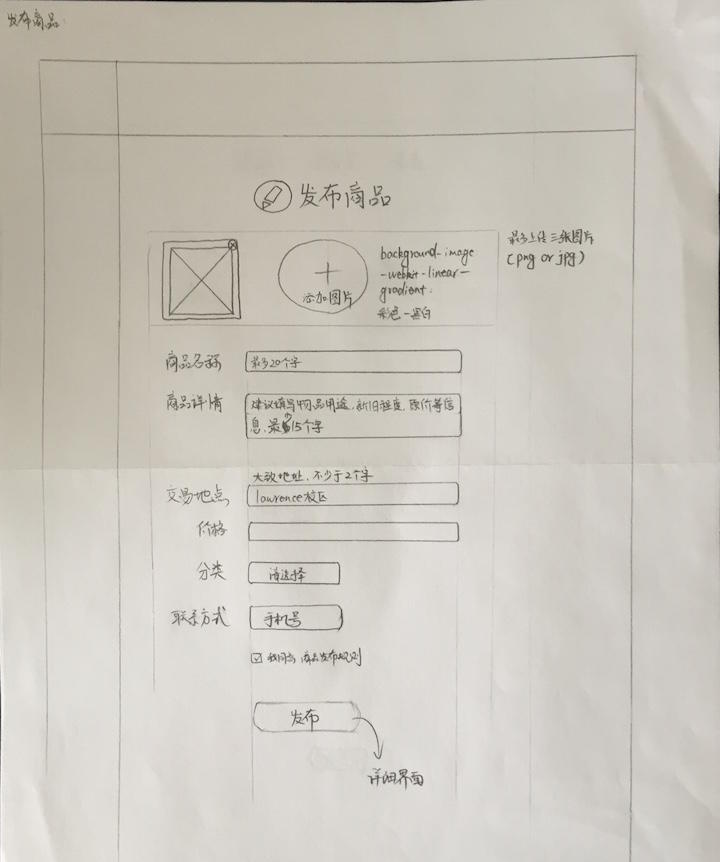 发布商品
发布商品
最多上传三张图片
(png or jpg)
background-image
-webkit-linear-
gradient.
彩色-黑白
添加图片
商品名称
最多20个字
商品详情
建议填写物品用途,新旧程度,原价等信
息,最多15个字
大致地址,不少于2个字
交易地点
lawrence校区
价格
分类
请选择
联系方式
手机号
我同意 商品发布规则
发布
详细界面